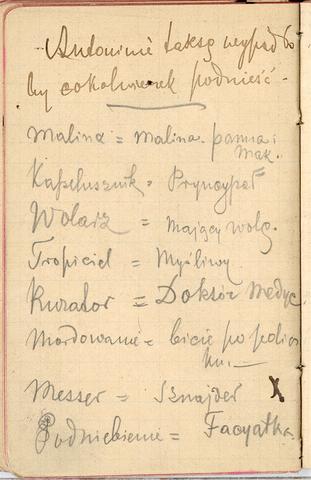 Antoninie taksę wypad ło
by cokolwienek podnieść -
Malina = Malina. panna i
Mak.
Kapelusznik = Pryncypał
Wolarz = mający wolę.
Tropiciel = Myśliwy
Kurator = Doktór Medyc.
Mordowanie = bicie po policz
ku. —
Messer = Sznajder X
Podniebienie = Facyatka.